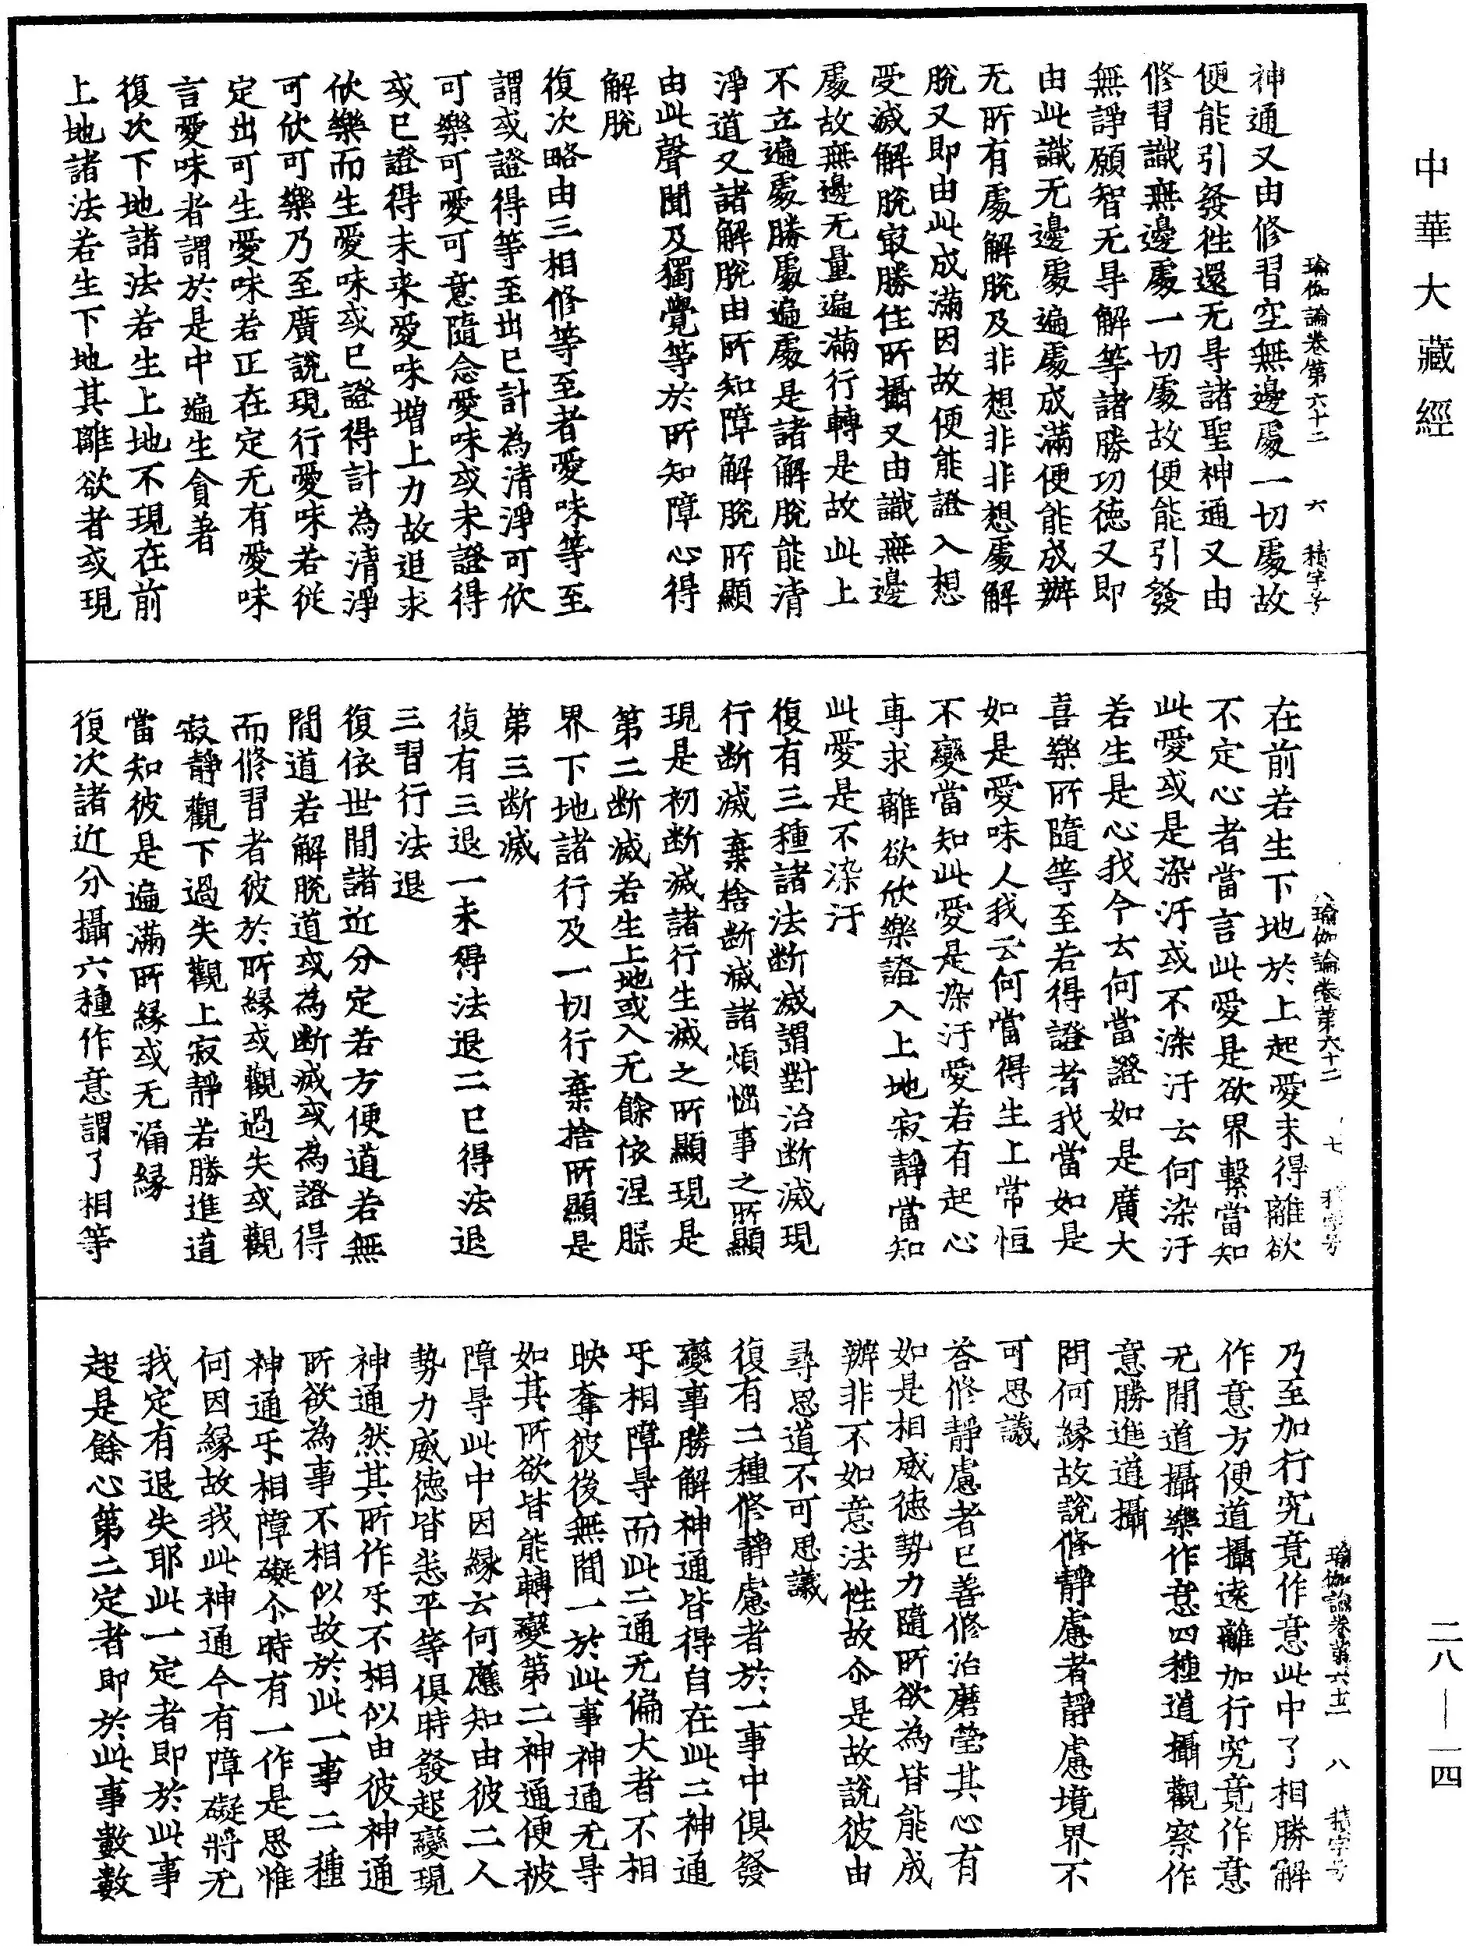 中華大藏經
瑜伽論卷第六十二 六 積字号
神通又由修習空無邊處一切處故
便能引發往還无㝵諸聖神通又由
修習識無邊處一切處故便能引發
無諍願智无㝵解等諸勝功德又即
由此識无邊處遍處成滿便能成辦
无所有處解脫及非想非非想處解
脫又即由此成滿因故便能證入想
受滅解脫㝡勝住所攝又由識無邊
處故無邊无量遍滿行轉是故此上
不立遍處勝處遍處是諸解脫能清
淨道又諸解脫由所知障解脫所顯
由此聲聞及獨覺等於所知障心得
解脫
復次略由三相修等至者愛味等至
謂或證得等至出已計為清淨可欣
可樂可愛可意隨念愛味或未證得
或已證得未来愛味增上力故追求
欣樂而生愛味或已證得計為清淨
可欣可樂乃至廣說現行愛味若從
定出可生愛味若正在定无有愛味
言愛味者謂於是中遍生貪著
復次下地諸法若生上地不現在前
上地諸法若生下地其離欲者或現
瑜伽論卷第六十二 七 積字号
在前若生下地於上起愛未得離欲
不定心者當言此愛是欲界繫當知
此愛或是染汙或不染汙云何染汙
若生是心我今云何當證如是廣大
喜樂所隨等至若得證者我當如是
如是愛味人我云何當得生上常恒
不變當知此愛是染汙愛若有起心
專求離欲欣樂證入上地寂靜當知
此愛是不染汙
復有三種諸法斷滅謂對治斷滅現
行斷滅棄捨斷滅諸煩惱事之所顯
現是初斷滅諸行生滅之所顯現是
第二斷滅若生上地或入无餘依涅槃
界下地諸行及一切行棄捨所顯是
第三斷滅
復有三退一未得法退二已得法退
三習行法退
復依世間諸近分定若方便道若無
間道若解脫道或為斷滅或為證得
而修習者彼於所緣或觀過失或觀
寂靜觀下過失觀上寂靜若勝進道
當知彼是遍滿所緣或无漏緣
復次諸近分攝六種作意謂了相等
瑜伽論卷第六十二 八 積字号
乃至加行究竟作意此中了相勝解
作意方便道攝遠離加行究竟作意
无間道攝樂作意四種道攝觀察作
意勝進道攝
問何緣故說修靜慮者靜慮境界不
可思議
荅修靜慮者已善修治磨瑩其心有
如是相威德勢力隨所欲為皆能成
辦非不如意法性故尒是故說彼由
尋思道不可思議
復有二種修靜慮者於一事中俱發
變事勝解神通皆得自在此二神通
㸦相障㝵而此二通无偏大者不相
映奪彼後無間一於此事神通无㝵
如其所欲皆能轉變第二神通便被
障㝵此中因緣云何應知由彼二人
勢力威德皆悉平等俱時發起變現
神通然其所作㸦不相似由彼神通
所欲為事不相似故於此一事二種
神通㸦相障礙尒時有一作是思惟
何因緣故我此神通今有障礙將无
我定有退失耶此一定者即於此事
起是餘心第二定者即於此事數數
二八—一四